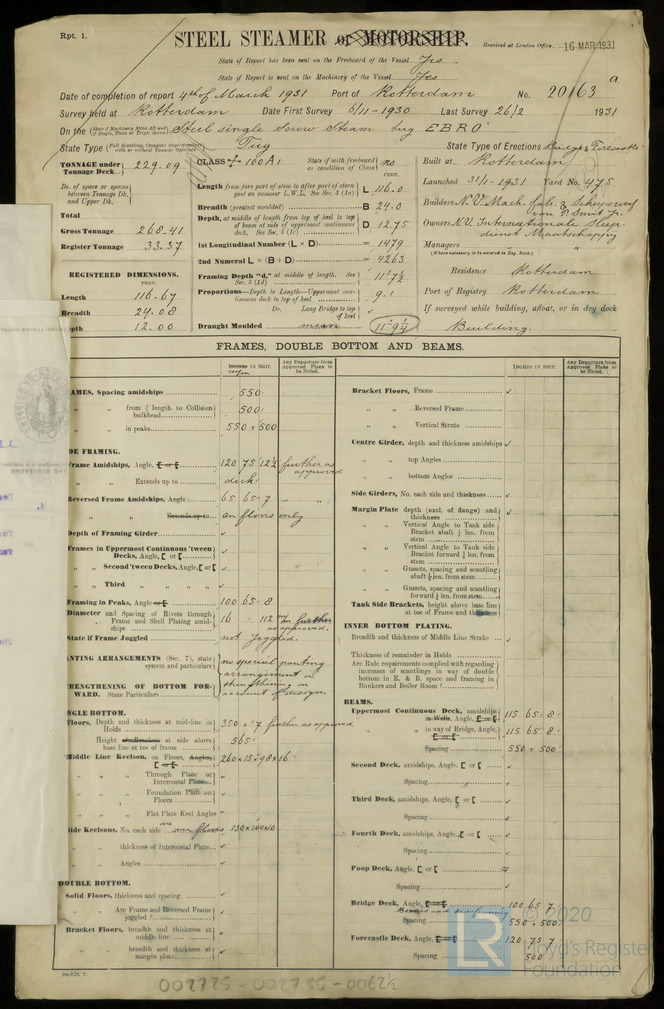 Rpt. 1.
STEEL STEAMER or MOTORSHIP.
Received at London Office 16 MAR 1931
State if Report has been sent on the Freeboard of the Vessel Yes
State if Report is sent on the Machinery of the Vessel Yes
Date of completion of report 4th of March 1931 Port of Rotterdam No. 20163 a
Survey held at Rotterdam Date First Survey 6/11-1930 Last Survey 26/2 1931
On the Steel single Screw Steam tug EBRO
State Type Tug State Type of Erections Bridge & Forecastle
TONNAGE under Tonnage Deck 229.09
Do. of space or spaces between Tonnage Dk. and Upper Dk.
Total
Gross Tonnage 268.41
Register Tonnage 33.37
REGISTERED DIMENSIONS.
FEET.
Length 116.67
Breadth 24.08
epth 12.00
CLASS + 100A1 State if with freeboard as condition of Class no
Length from fore part of stem to after part of stern post on summer L.W.L. See Sec. 3 (1a) L 116.0
Breadth (greatest moulded) B 24.0
Depth, at middle of length from top of keel to top of beam at side of uppermost continuous deck. See Sec. 3 (1c) D 12.75
1st Longitudinal Number (L × D) = 1479
2nd Numeral L × (B + D) = 4263
Framing Depth "d," at middle of length. See Sec. 3 (1d) 11'-7½
Proportions—Depth to Length—Uppermost continuous deck to top of keel 9.1
Do. Long Bridge to top of keel
Draught Moulded 11'-9¼
Built at Rotterdam
Launched 31/1-1931 Yard No. 475
Builders N.V. Mach. fab. & Scheepswerf van P. Smit Jr.
Owners N.V. Internationale Sleepdienst Maatschappij
Managers "
(Where necessary to be entered in Reg. Book.)
Residence Rotterdam
Port of Registry Rotterdam
If surveyed while building, afloat, or in dry dock
Building.
FRAMES, DOUBLE BOTTOM AND BEAMS.
INCHES IN SHIP. m/m
Any Departure from Approved Plans to be Noted.
INCHES IN SHIP.
Any Departure from Approved Plans to be Noted.
AMES, Spacing amidships 550
" " from ⅗ length to Collision bulkhead 500
" " in peaks 550 + 500
DE FRAMING.
Frame Amidships, Angle, [ or [ 120 75 12½ further as approved
" " Extends up to deck
Reversed Frame Amidships, Angle 65 65 7 " "
" " Extends up to on floors only
Depth of Framing Girder ✓
Frames in Uppermost Continuous 'tween Decks, Angle, [ or [ ✓
" " Second 'tween Decks, Angle, [ or [ ✓
" " Third " " " " ✓
Framing in Peaks, Angle or [ 100 65 8
Diameter and Spacing of Rivets through Frame and Shell Plating amidships 16 112 m/m further as approved.
State if Frame Joggled not joggled.
NTING ARRANGEMENTS (Sec. 7), state system and particulars
RENGTHENING OF BOTTOM FORWARD. State Particulars
no special panting arrangement or strengthening on account of design.
NGLE BOTTOM.
Floors, Depth and thickness at mid-line in Holds 350 × 7 further as approved
Height of Brackets at side above base line at toe of frame 565
Middle Line Keelson, on Floors, Angles, [ or [ 260 × 15 × 98 × 16
" " " Through Plate or Intercostal Plate ✓
" " " Foundation Plate on Floors ✓
" " " Flat Plate Keel Angles ✓
ide Keelsons, No. each side one 130 × 100 × 10
" " thickness of Intercostal Plate ✓
" " Angles ✓
DOUBLE BOTTOM.
Solid Floors, thickness and spacing ✓
" " Are Frame and Reversed Frame joggled? ✓
Bracket Floors, breadth and thickness at middle line ✓
" " breadth and thickness at margin plate ✓
Bracket Floors, Frame ✓
" " Reversed Frame
" " Vertical Struts
Centre Girder, depth and thickness amidships ✓
" " top Angles
" " bottom Angles
Side Girders, No. each side and thickness ✓
Margin Plate depth (excl. of flange) and thickness
" " Vertical Angle to Tank side Bracket abaft ¼ len. from stem
" " Vertical Angle to Tank side Bracket forward ¼ len. from stem
" " Gussets, spacing and scantling abaft ¼ len. from stem
" " Gussets, spacing and scantling forward ¼ len. from stem
Tank Side Brackets, height above base line at toe of Frame and thickness
INNER BOTTOM PLATING.
Breadth and thickness of Middle Line Strake ✓
Thickness of remainder in Holds
Are Rule requirements complied with regarding increases of scantlings in way of double bottom in E. & B. space and framing in Bunkers and Boiler Room?
BEAMS.
Uppermost Continuous Deck, amidships in Wells, Angle, [ or [ 115 65 8
" " in way of Bridge, Angle, [ or [ 115 65 8
Spacing 550 + 500
Second Deck, amidships, Angle, [ or [ ✓
Spacing ✓
Third Deck, amidships, Angle, [ or [ ✓
Spacing ✓
Fourth Deck, amidships, Angle, [ or [ ✓
Spacing ✓
Poop Deck, Angle, [ or [
Spacing ✓
Bridge Deck, Angle, [ or [ 100 65 7
Spacing 550 + 500
Forecastle Deck, Angle, [ or [ 120 75 7
Spacing 500
© 2020
LR
Lloyd's Register Foundation
002725 - 002735 - 0062½